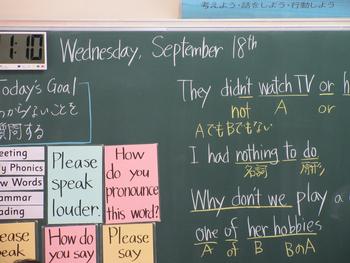 考えよう・話をしよう・行動しよう
1:10
Wednesday, September 18th
Today's Goal
わからないことを
質問する
They didn't watch TV or
not A or
AでもBでもない
I had nothing to do
名詞
Why don't we play a
one of her hobbies
A of B BのA
Greeting
Phonics
New Words
Grammar
Reading
Please
speak
louder.
How
do you
pronounce
this word?
Please
speak
How do
you say
Please
say